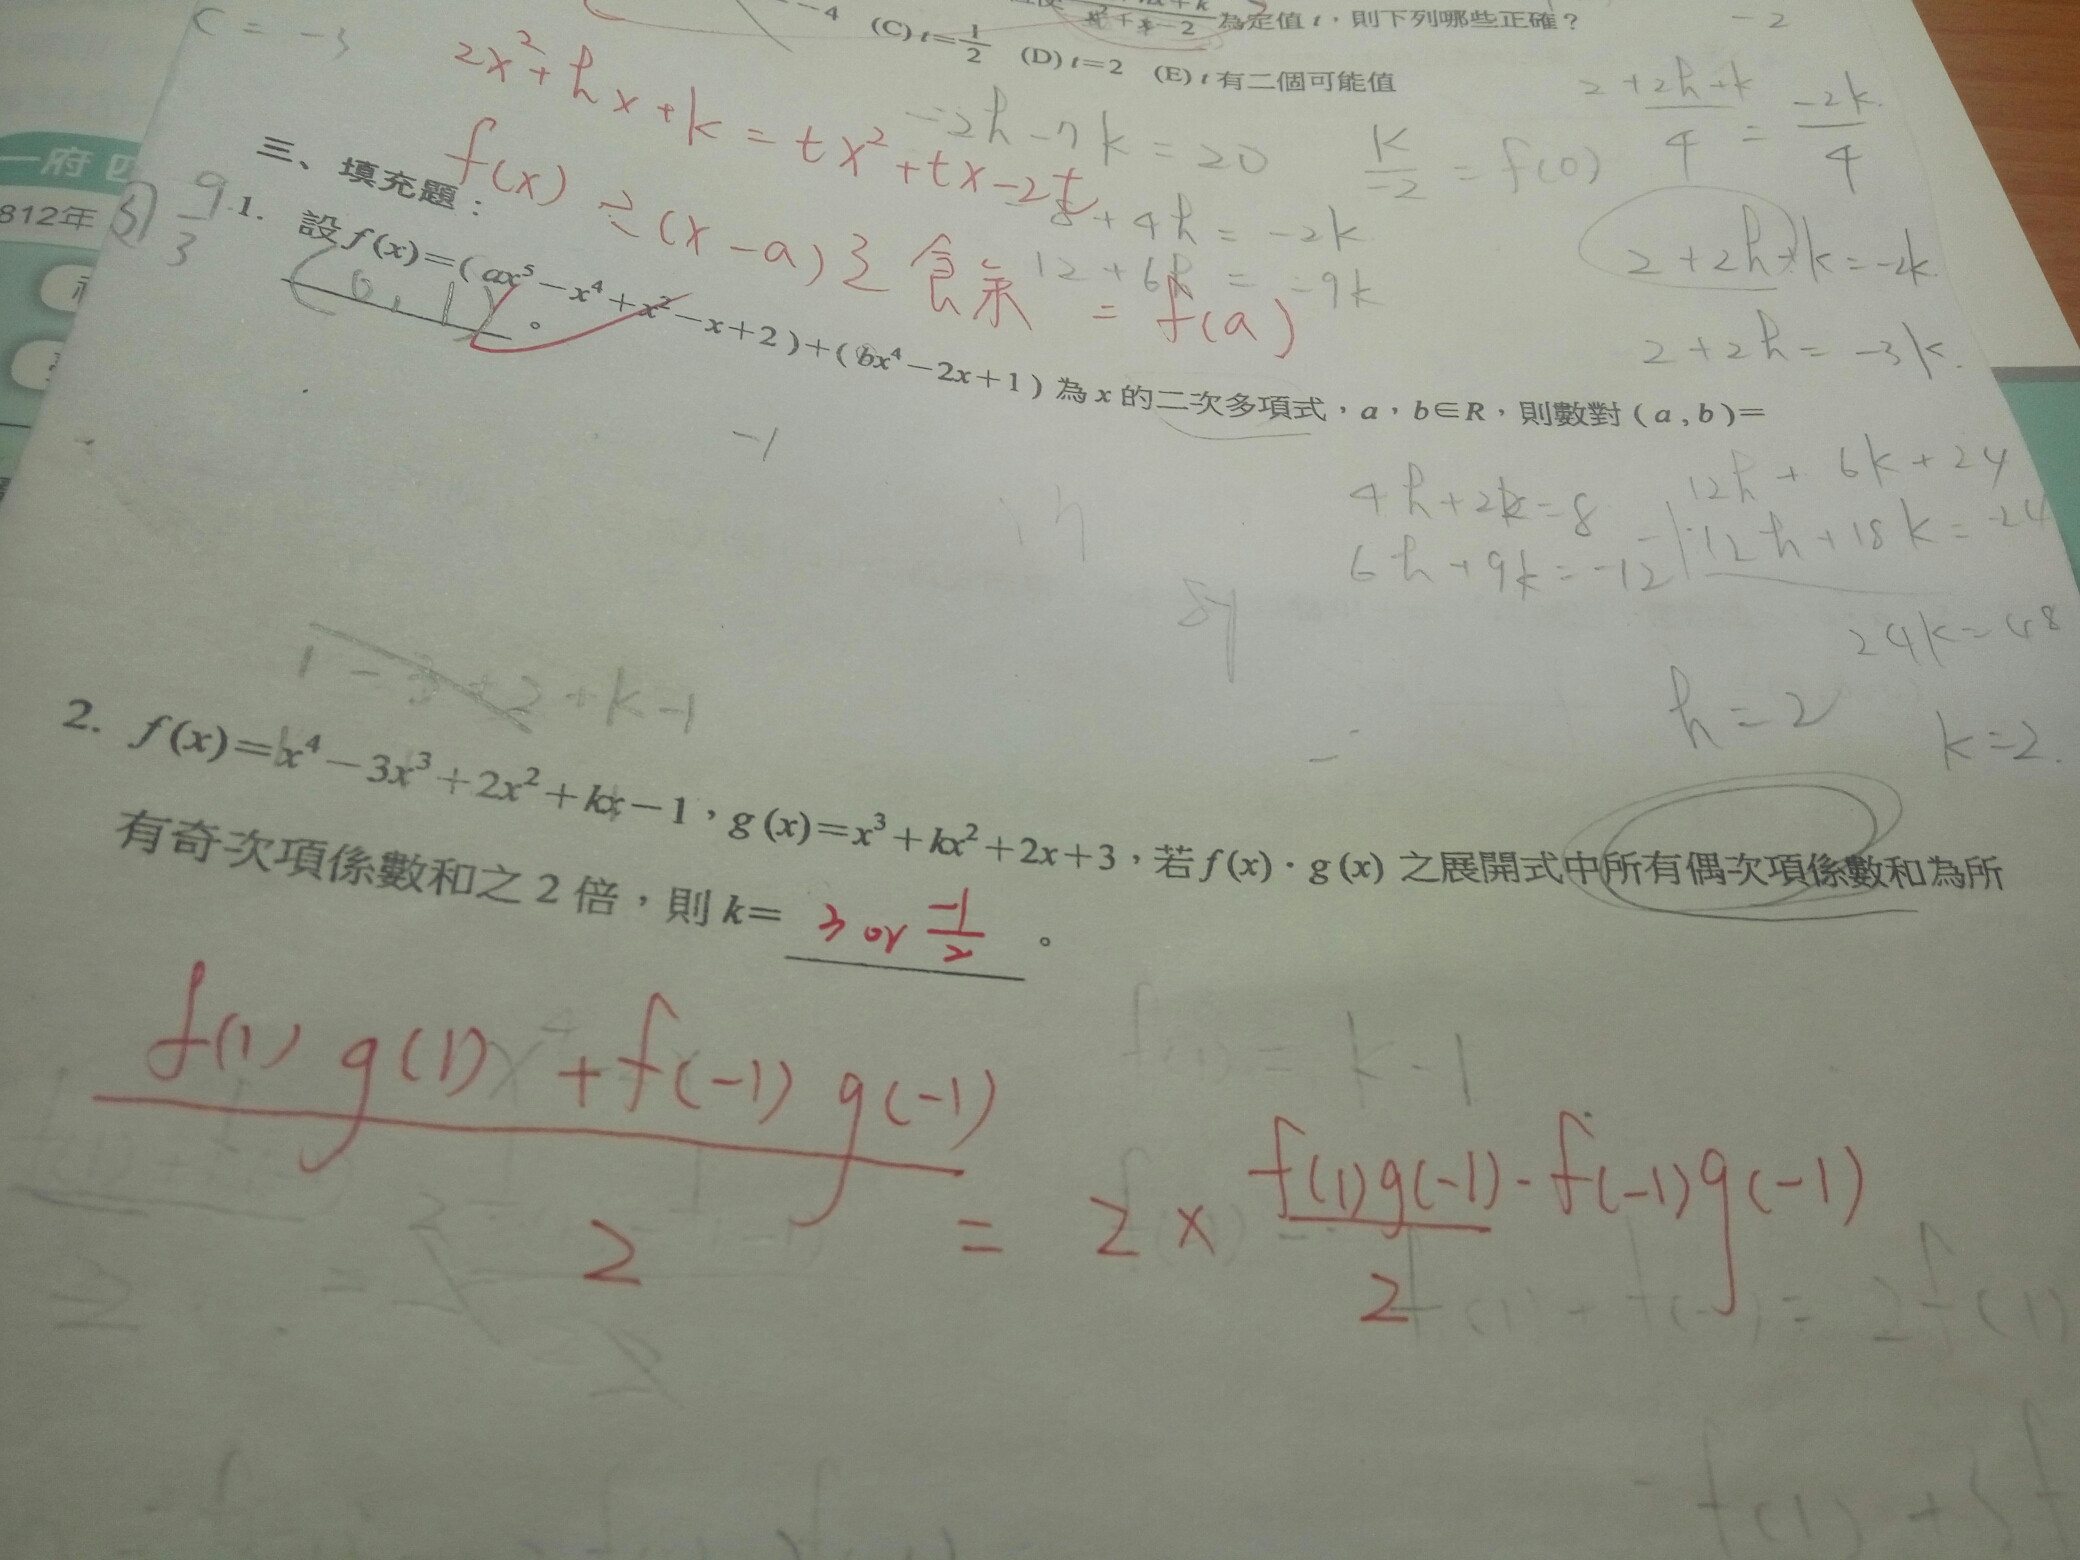 為定值 t，則下列哪些正確？
-4 (C) t=1/2 (D) t=2 (E) t 有二個可能值
-2
c = -3
2x²+hx+k = tx²+tx-2t
-2h-7k=20
k/-2 = f(0)
(2+2h+k)/4 = -2k/4
一府四
812年
三、填充題：
f(x) 之 (x-a) 之餘末 = f(a)
8+4h = -2k
12+6h = -9k
2+2h+k=-2k
2+2h=-3k
9/3
1. 設 f(x)=(ax⁵-x⁴+x²-x+2)+(bx⁴-2x+1) 為 x 的二次多項式，a，b∈R，則數對 (a,b)=
(0,1)。
-1
4h+2k=8
6h+9k=-12
12h+6k+24
12h+18k=-24
24k=48
h=2
k=2.
1-3+2+k-1
2. f(x)=x⁴-3x³+2x²+kx-1，g(x)=x³+kx²+2x+3，若 f(x)·g(x) 之展開式中所有偶次項係數和為所
有奇次項係數和之 2 倍，則 k= 3 or -1/2 。
f(1) = k-1
(f(1)g(1)+f(-1)g(-1))/2 = 2×(f(1)g(-1)-f(-1)g(-1))/2
f(1)+f(-1)=2f(1)